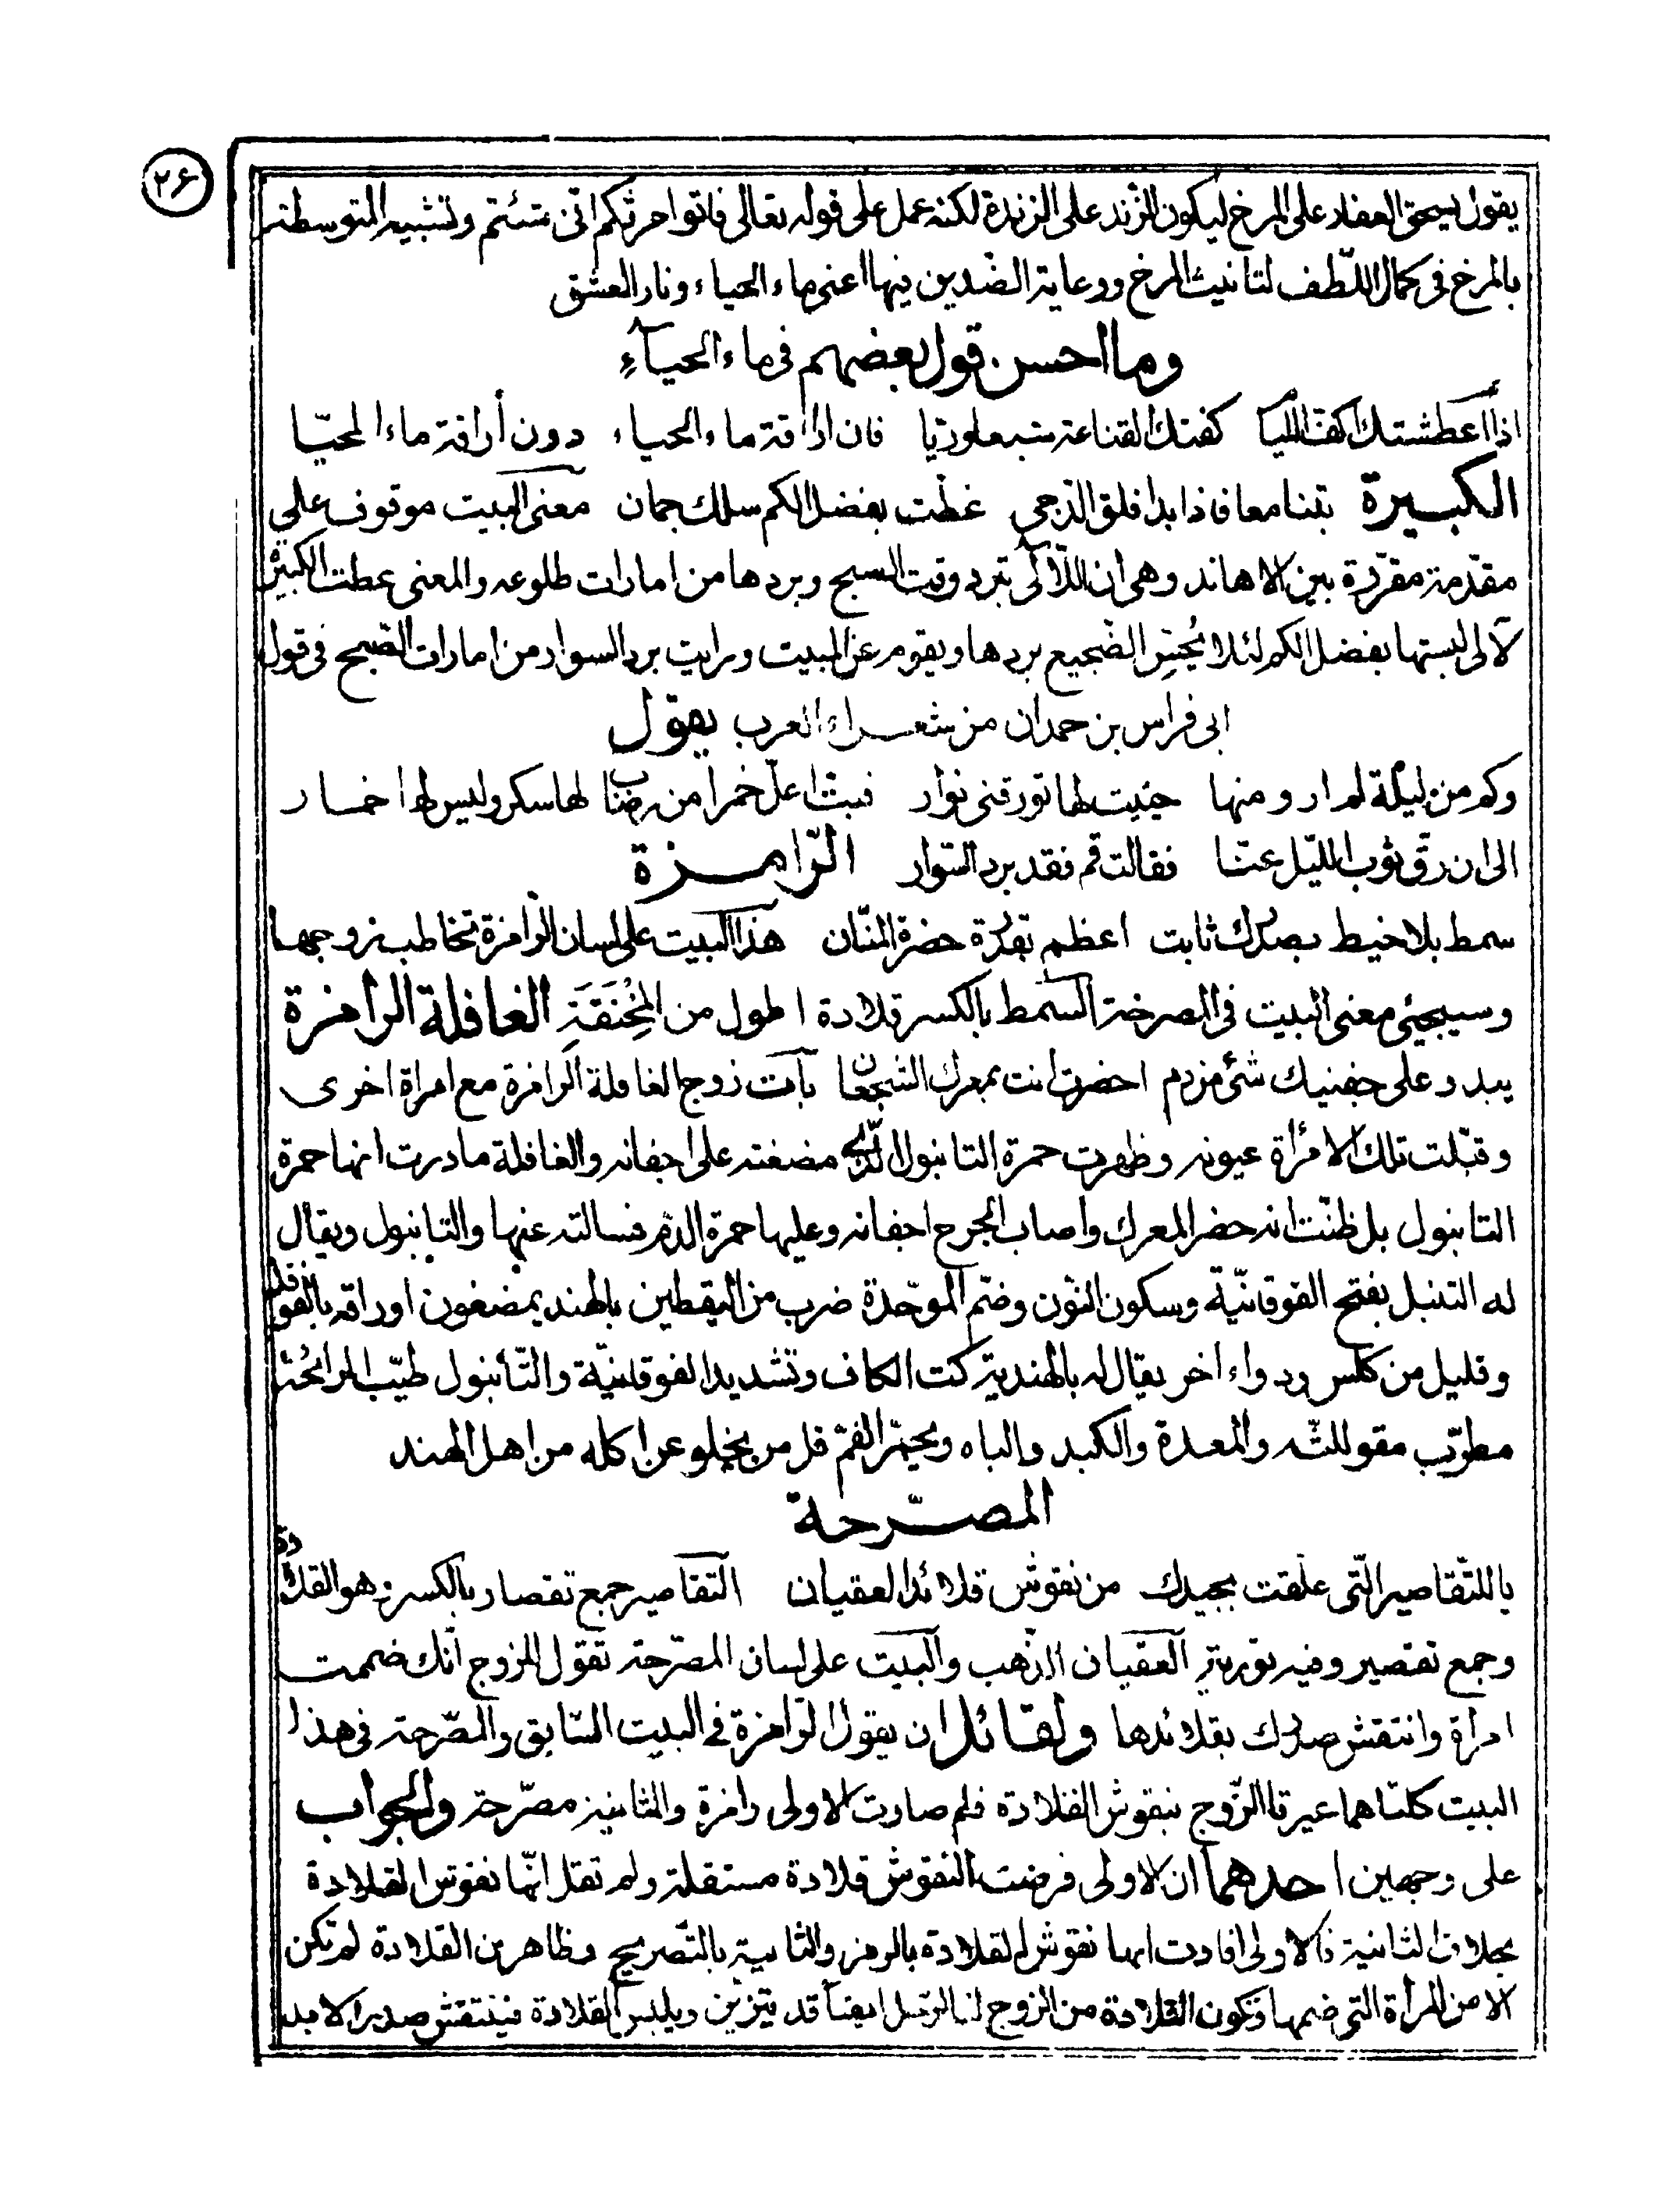 ۲۶
يقول يسحق العفار على المرخ ليكون الزند على الزندة لكنه عمل على قوله تعالى فاتوا حرثكم انّى شئتم وتشبيه المتوسطة
بالمرخ فى كمال اللّطف لتانيث المرخ ورعاية الضّدين فيها اعنى ماء الحياء ونار العشق
وما احسن قول بعضهم فى ماء الحيآءِ
اذا أعطشتك اكفّ اللّيا كفتك القناعة شبعا وريا فان اراقة ماء الحياء دون أراقة ماء المحيّا
الكبيرة بتنا معا فاذا بدا فلق الدّجى غطّت بفضل الكم سلك جمان معنى البيت موقوف على
مقدّمة مقرّرة بين الاهاند وهى ان اللّآلى تبرد وقت الصبح وبردها من امارات طلوعه والمعنى غطت الكبيرة
لآلى لبستها بفضل الكم لئلا يُحِسّ الضّجيع بردها ويقوم عن المبيت ورايت برد السوار من امارات الصّبح فى قول
ابى فراس بن حمدان من شعراء العرب يقول
وكم من ليلة لم ارو منها حننت لها تورقنى نوار فبتّ اعلّ خمرا من رضاب لها سكر وليس لها خمار
الى ان رقّ ثوب اللّيل عنّا فقالت قم فقد برد السّوار الرّامزة
سمط بلا خيط بصدرك ثابت اعظم بقدرة حضرة المنّان هذا البيت على لسان الرّامزة تخاطب زوجها
وسيجئ معنى البيت فى المصرحة السّمط بالكسر قلادة اطول من المِخْنَقَةِ الغافلة الرامزة
يبدو على جفنيك شئ مزدم احضرت انت بمعرك الشّجعان بآت زوج الغافلة الرامزة مع امراة اخرى
وقبّلت تلك الامرأة عيونه وظهرت حمرة التانبول الّذى مضغته على اجفانه والغافلة ما درت انها حمرة
التانبول بل ظنّت انه حضر المعرك واصاب الجرح اجفانه وعليها حمرة الدّم فسالته عنها والتانبول ويقال
له التنبل بفتح الفوقانيّة وسكون النّون وضمّ الموحّدة ضرب من اليقطين بالهند يمضغون اوراقه بالفوفل
وقليل من كلس ودواء اخر يقال له بالهندية كت الكاف وتشديد الفوقانيّة والتّانبول طيّب الرائحة
مطرّب مقو للثّه والمعدة والكبد والباه ويحمّر الفمّ قل من يخلو عن اكله من اهل الهند
المصرّحة
يا للتّقاصير الّتى علّقت بجيدك من نقوش قلائد العقيان التّقاصير جمع تقصار بالكسر وهو القلادة
وجمع تقصير وفيه تورية العقيان الذّهب والبيت على لسان المصرّحة تقول لزوج انّك ضممت
امرأة وانتقش صدرك بقلائدها ولقائل ان يقول الرّامزة فى البيت السّابق والمصّرحة فى هذا
البيت كلتاهما عيرتا الزّوج بنقوش القلادة فلم صارت الاولى رامزة والثانية مصرّحة والجواب
على وجهين احدهما ان الاولى فرضت النّقوش قلادة مستقلة ولم تقل انّها نقوش القلادة
بخلاف الثانية فالاولى افادت انها نقوش القلادة بالرمز والثانية بالتّصريح وظاهر بن القلادة لم تكن
الا من المرأة التى ضمها وتكون القلادة من الزوج لنا الرّجل ايضا قد يتزين ويلبس القلادة فينتقش صدره الا بد